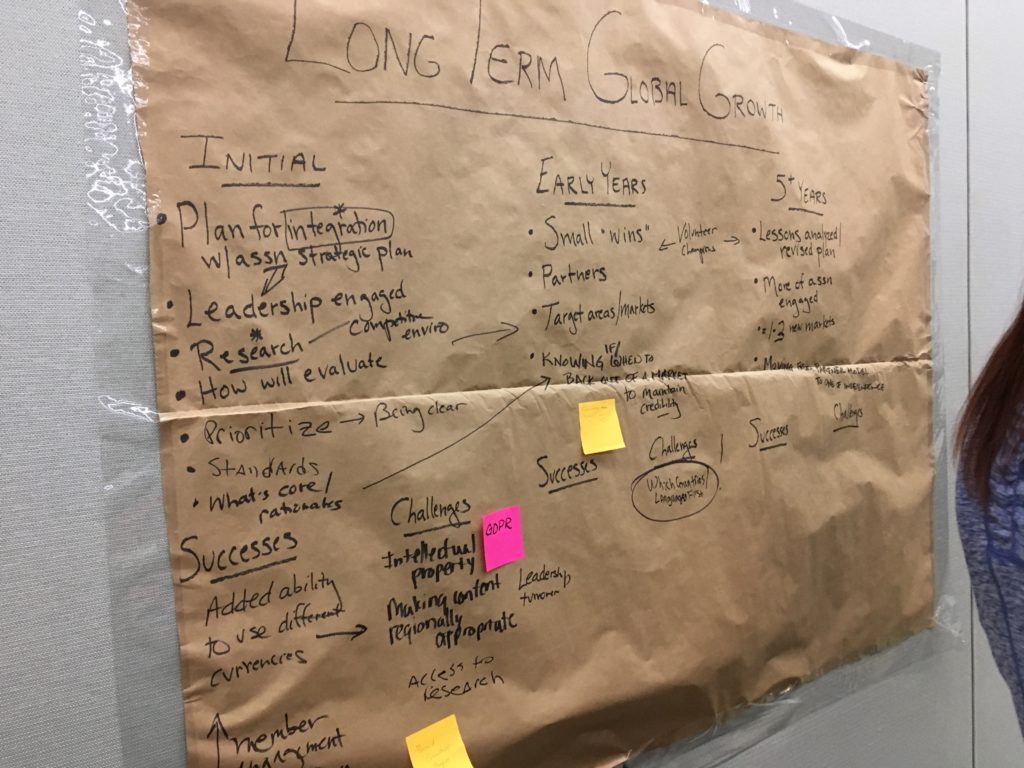 LONG TERM GLOBAL GROWTH
INITIAL
• Plan for integration*
w/assn strategic plan
• Leadership engaged
• Research* — competitive
enviro
• How will evaluate
• Prioritize → Being clear
• Standards
• What's core/
rationales
Successes
Added ability
to use different
currencies
↑ member
Challenges
Intellectual
property
GDPR
Making content
regionally
appropriate
Leadership
turnover
Access to
research
EARLY YEARS
• Small "wins"
← Volunteer
Champions →
• Partners
• Target areas/markets
• KNOWING IF/WHEN TO
BACK OUT OF A MARKET
to maintain
credibility
Successes
Challenges
Which Countries/
Languages First
5+ YEARS
• Lessons analyzed/
revised plan
• More of assn
engaged
• +/-2 new markets
• Moving
Successes
Challenges